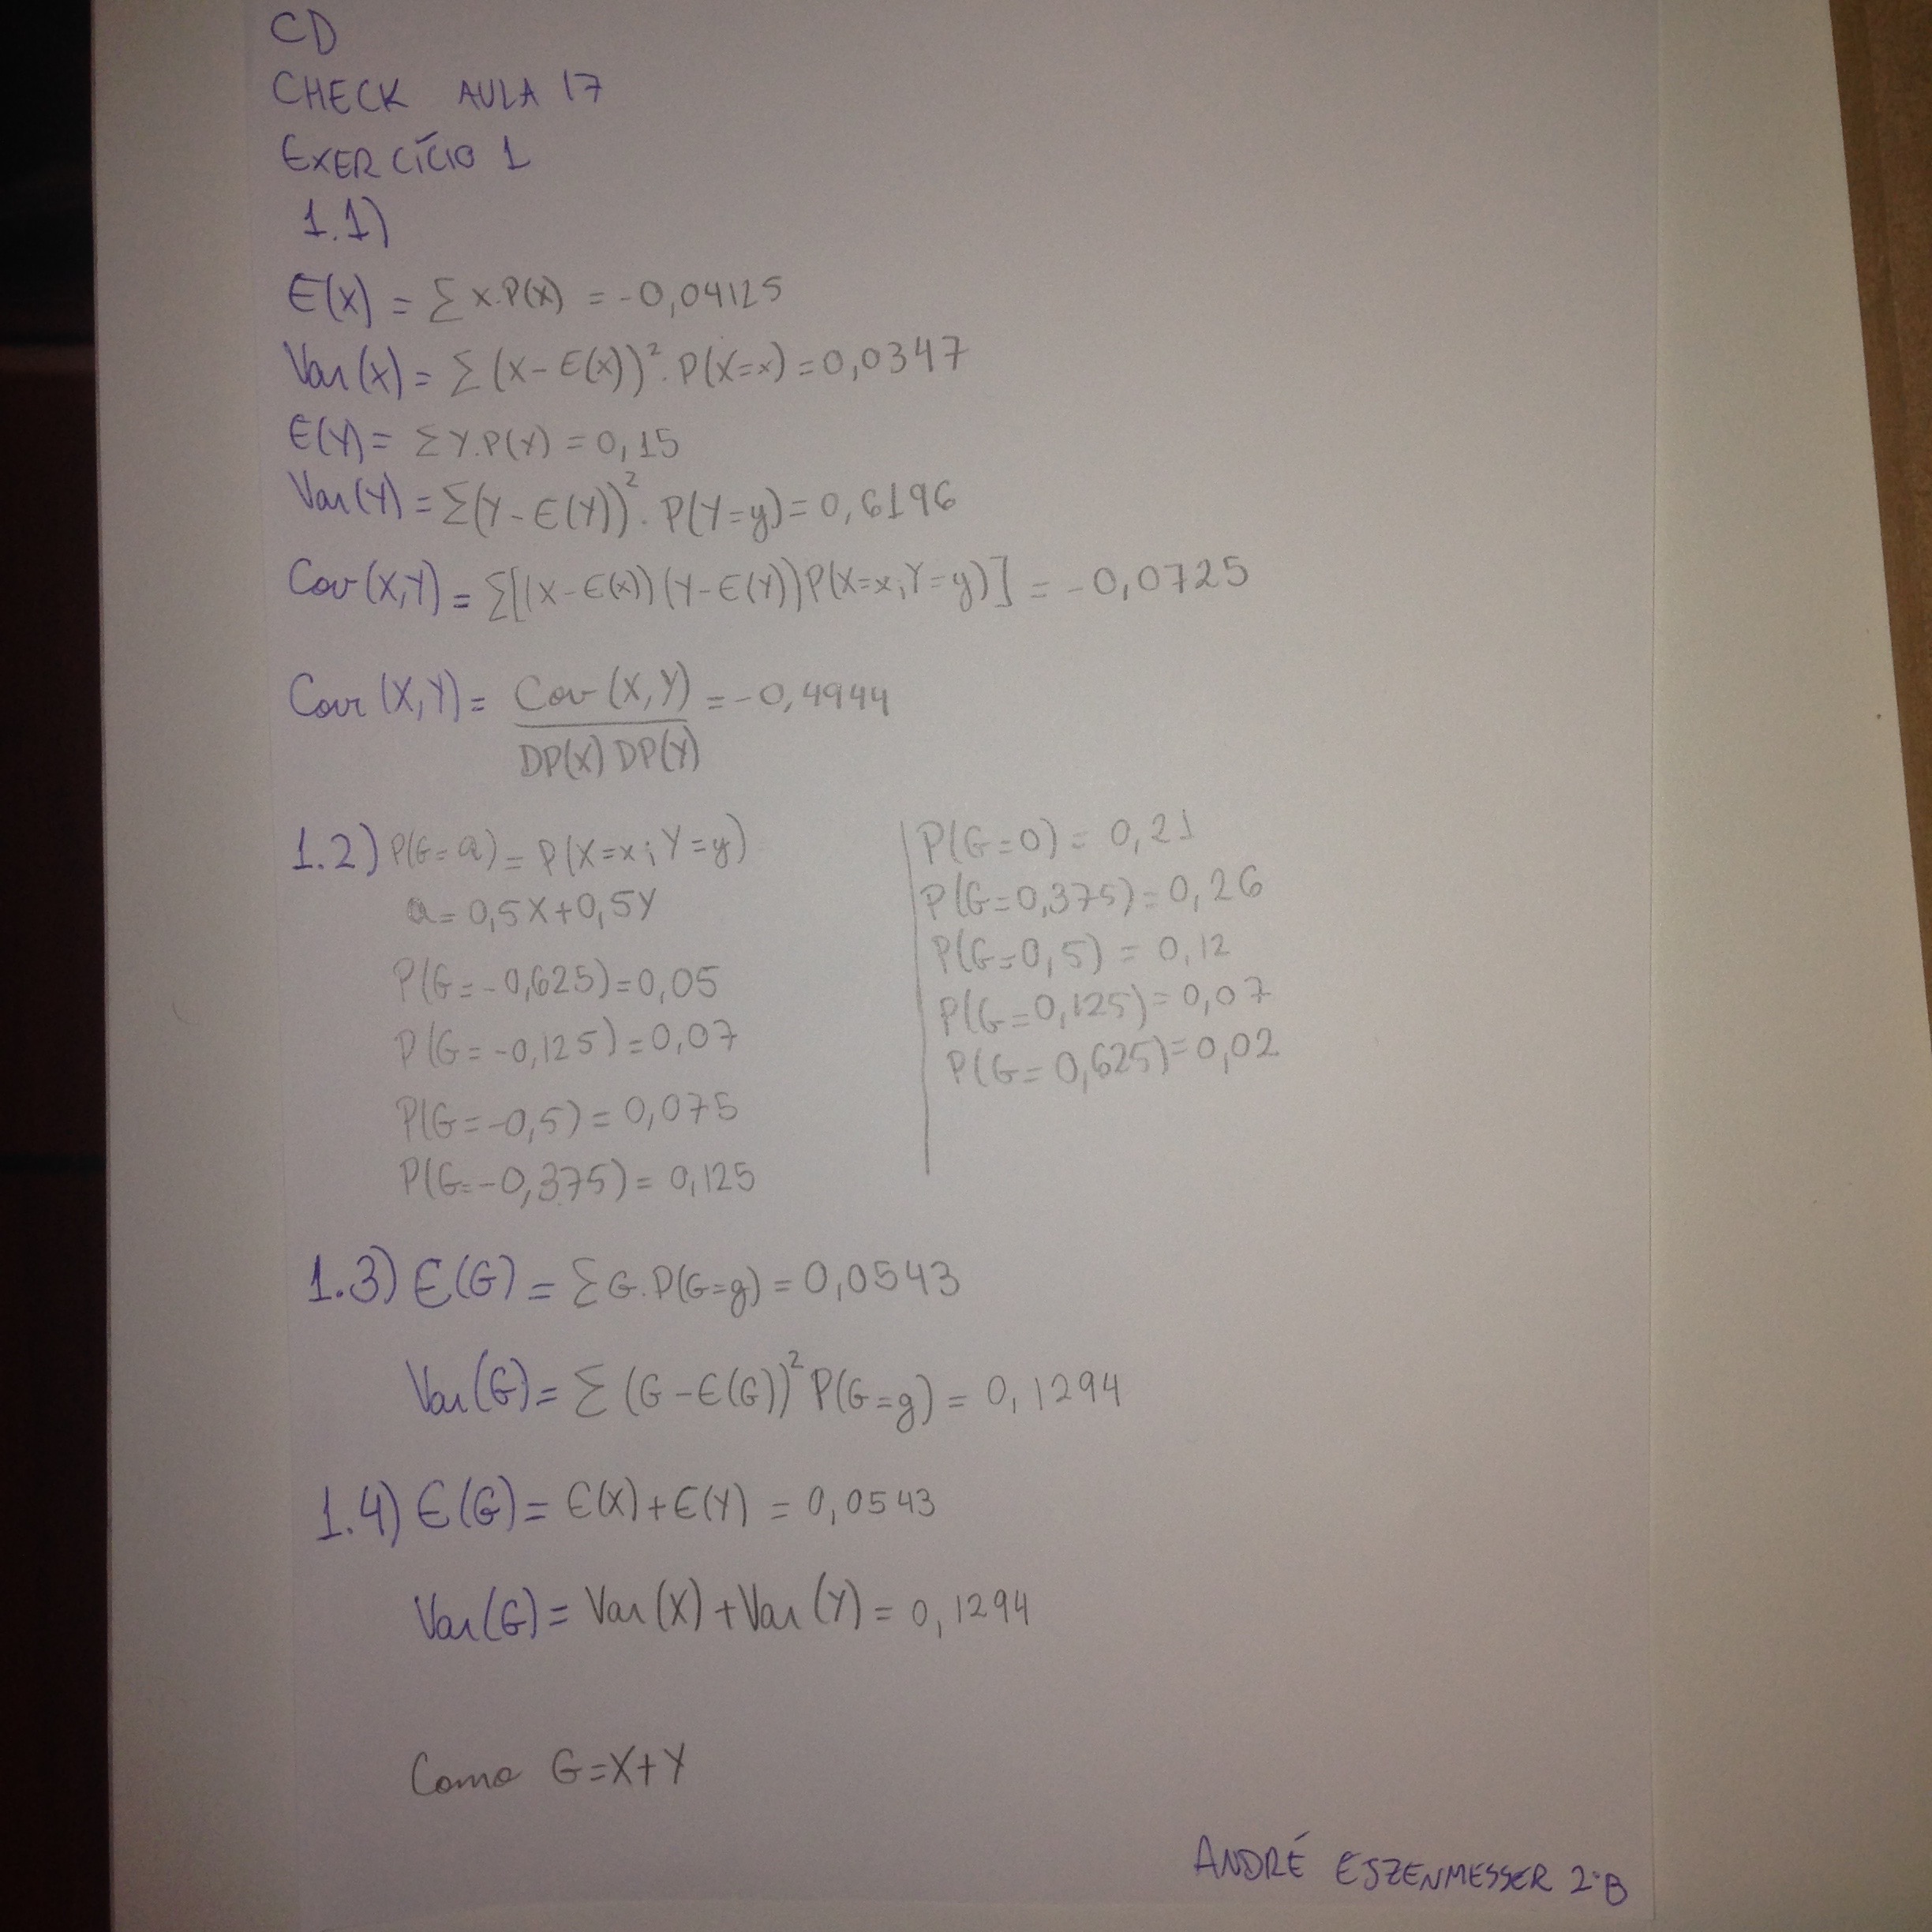 CD
CHECK AULA 17
EXERCÍCIO 1
1.1)
E(X) = Σ X.P(X) = -0,04125
Var(X) = Σ (X - E(X))². P(X=x) = 0,0347
E(Y) = Σ Y.P(Y) = 0,15
Var(Y) = Σ(Y - E(Y))². P(Y=y) = 0,6196
Cov(X,Y) = Σ[(X-E(X))(Y-E(Y))P(X=x;Y=y)] = -0,0725
Corr(X,Y) = Cov(X,Y) / DP(X) DP(Y) = -0,4944
1.2) P(G=a) = P(X=x;Y=y)
a = 0,5X+0,5Y
P(G=-0,625)=0,05
P(G=-0,125)=0,07
P(G=-0,5)=0,075
P(G=-0,375)=0,125
P(G=0) = 0,21
P(G=0,375)=0,26
P(G=0,5) = 0,12
P(G=0,125)=0,07
P(G=0,625)=0,02
1.3) E(G) = Σ G.P(G=g) = 0,0543
Var(G) = Σ (G-E(G))² P(G=g) = 0,1294
1.4) E(G) = E(X)+E(Y) = 0,0543
Var(G) = Var(X)+Var(Y) = 0,1294
Como G=X+Y
ANDRÉ ESZENMESSER 2ºB